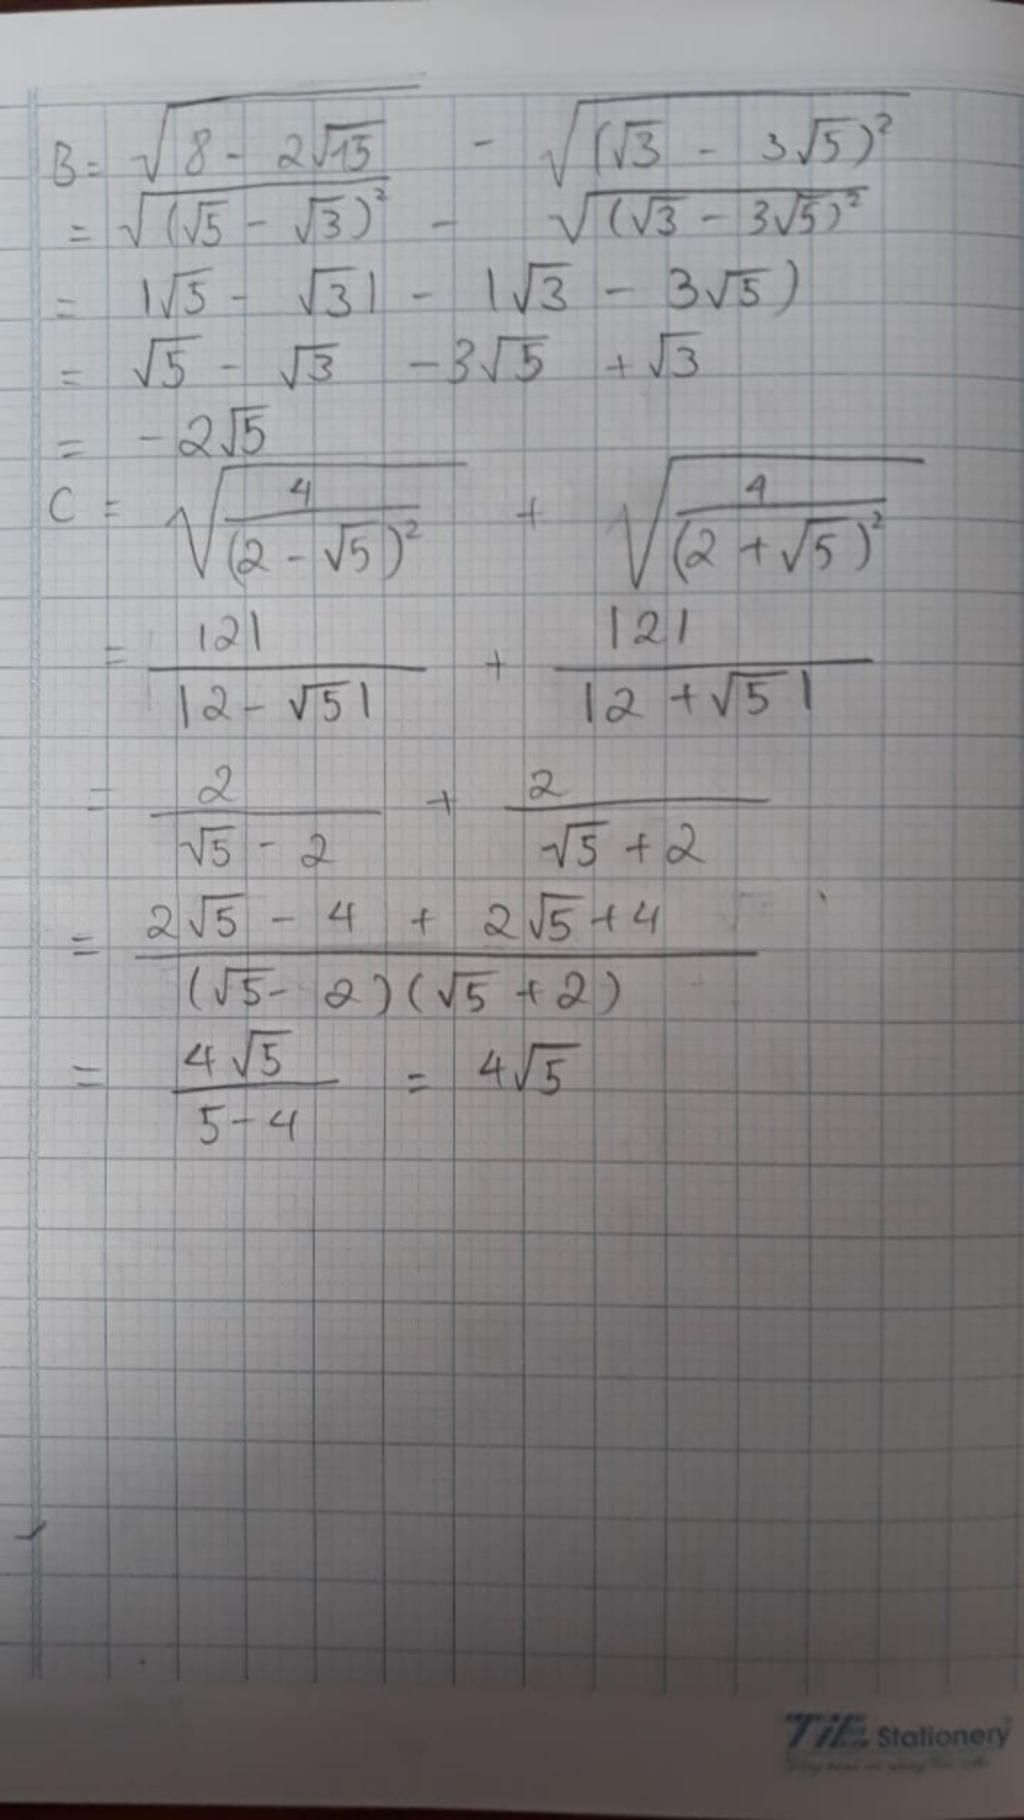 B = √(8 - 2√15) - √((√3 - 3√5)²)
= √((√5 - √3)²) - √((√3 - 3√5)²)
= |√5 - √3| - |√3 - 3√5)
= √5 - √3 - 3√5 + √3
= -2√5
C = √(4/(2 - √5)²) + √(4/(2 + √5)²)
= |2|/|2 - √5| + |2|/|2 + √5|
= 2/(√5 - 2) + 2/(√5 + 2)
= (2√5 - 4 + 2√5 + 4)/((√5 - 2)(√5 + 2))
= 4√5/(5 - 4) = 4√5
TiE Stationery